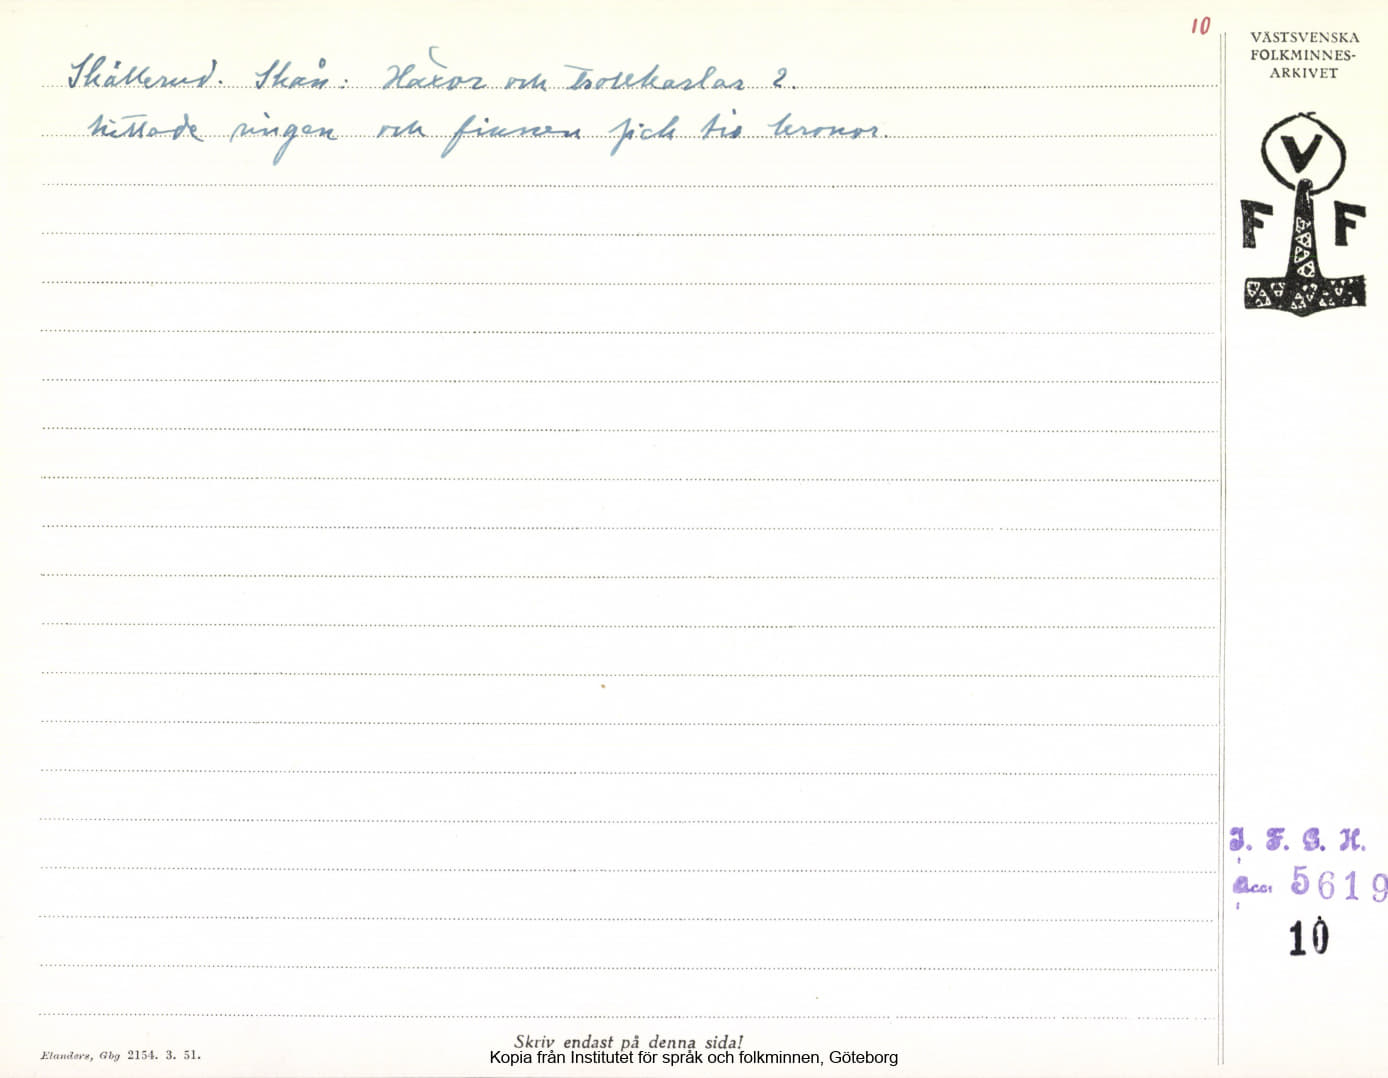 10
VÄSTSVENSKA
FOLKMINNES-
ARKIVET
Skållerud. Skån: Häxor och trollkarlar 2.
hittade ringen och finnen fick tio kronor.
V
F F
I. F. G. H.
Acc: 5619
10
Skriv endast på denna sida!
Elanders, Gbg 2154. 3. 51.
Kopia från Institutet för språk och folkminnen, Göteborg